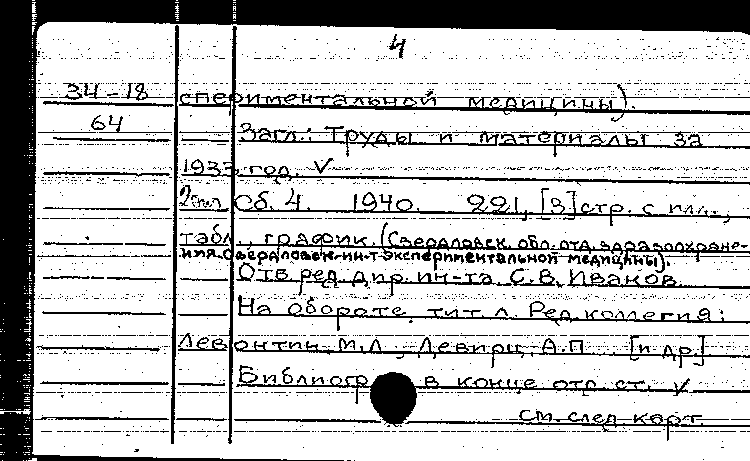 4
34-18 спериментальной медицины).
64 Загл.: Труды и материалы за
1933 год. V
2 экз. Сб. 4. 1940. 221, [3] стр. с илл.,
табл., график. (Свердловск. обл. отд. здравоохране-
ния. Свердловск. ин-т экспериментальной медицины).
Отв. ред. дир. ин-та С.В. Иванов
На обороте тит. л. Ред. коллегия:
Левонтин, М.Л., Девирц, А.П. [и др.]
Библиогр. в конце отд. ст. V
см. след. карт.